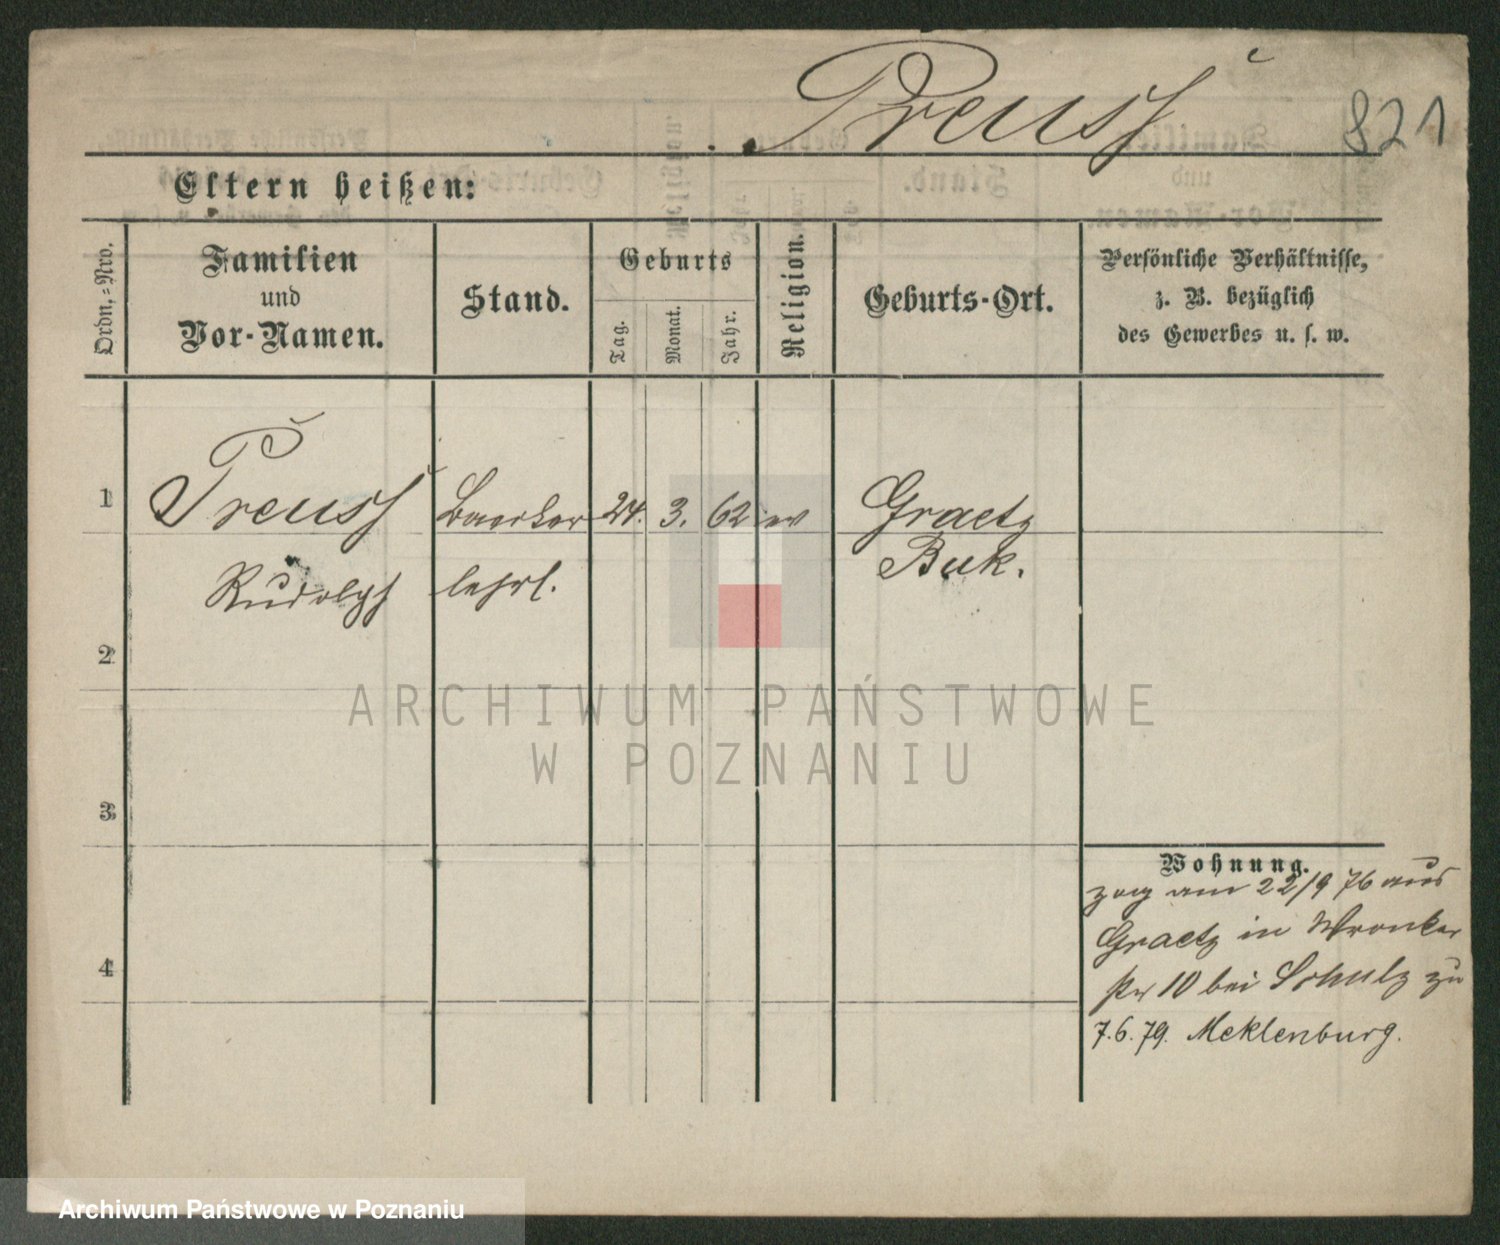 Preuss 821
Eltern heißen:
Ordn.-Nro.
Familien
und
Vor-Namen.
Stand.
Geburts
Tag.
Monat.
Jahr.
Religion.
Geburts-Ort.
Persönliche Verhältnisse,
z. B. bezüglich
des Gewerbes u. s. w.
1 Preuss Baecker 24. 3. 62 ev Graetz
Rudolph lehrl. Buk.
2
3
4
Wohnung.
zog am 22/9 76 aus
Graetz in Wronker
str 10 bei Schulz zu
7.6.79. Meklenburg.
ARCHIWUM PAŃSTWOWE
W POZNANIU
Archiwum Państwowe w Poznaniu